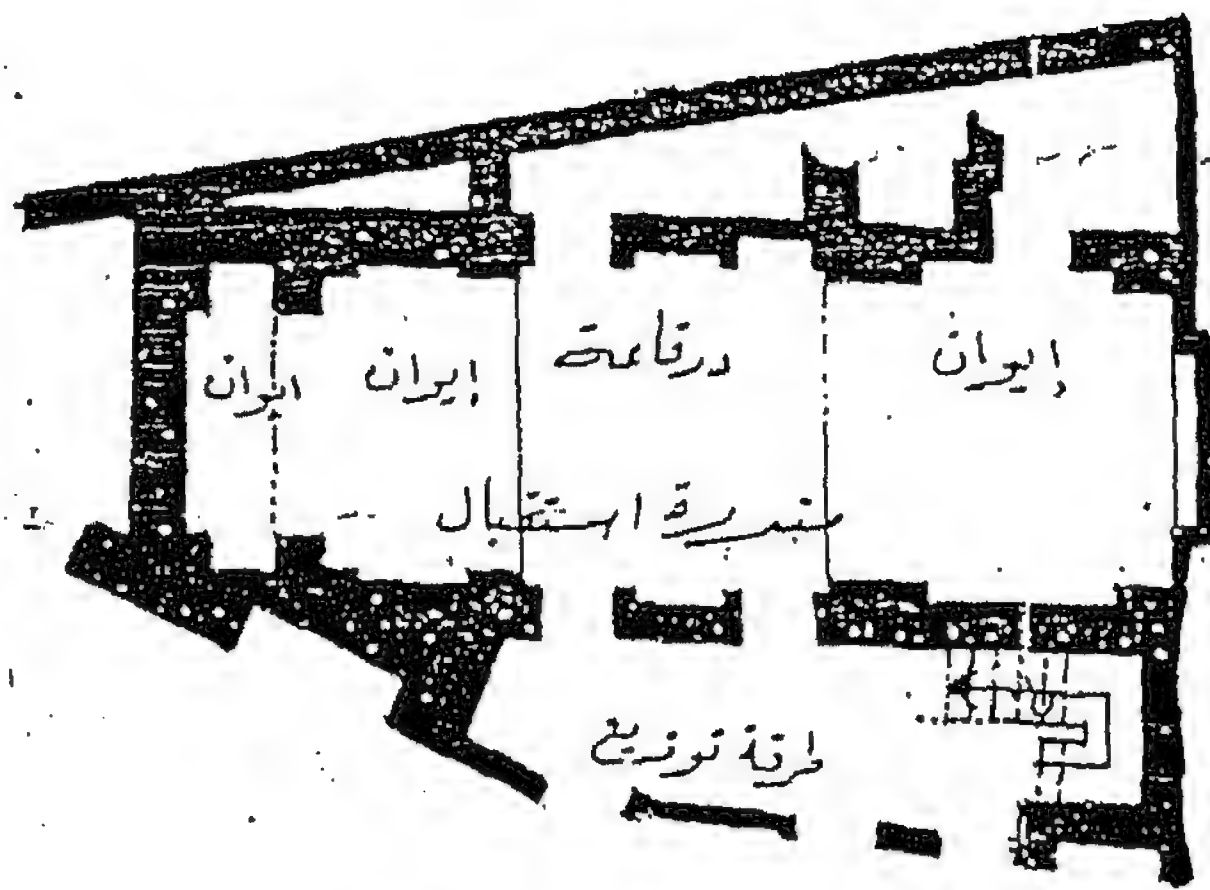 إيوان
درقاعة
إيوان
ايوان
مندرة استقبال
طرقة توزيع